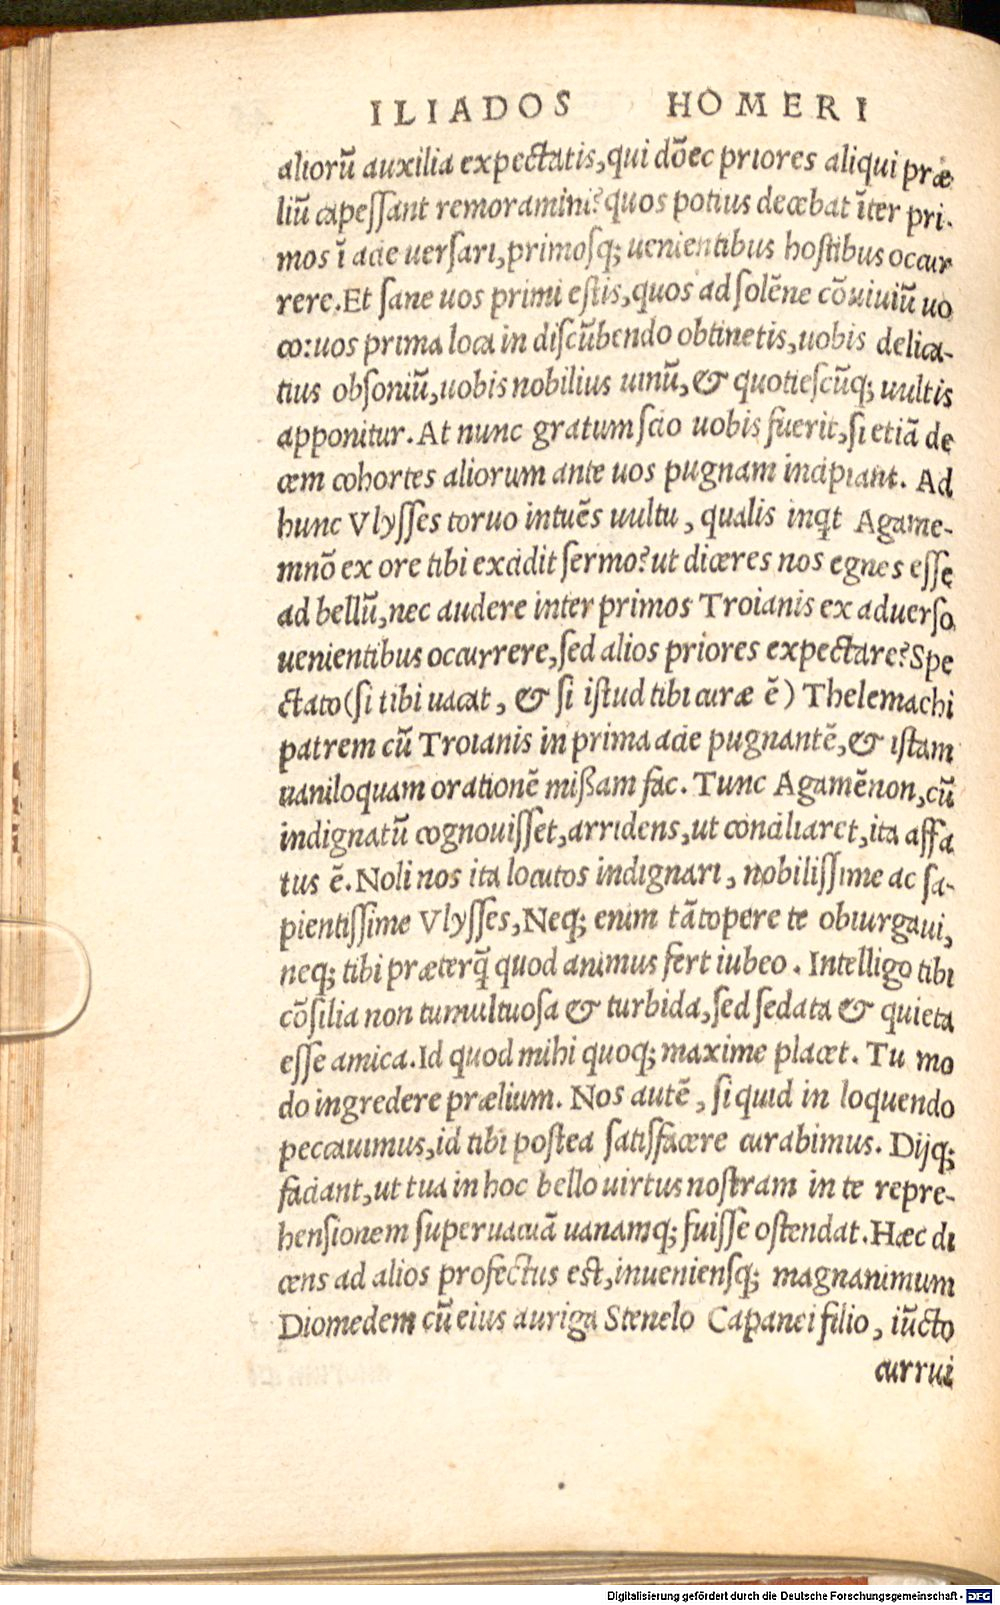 ILIADOS HOMERI
aliorũ auxilia expectatis,qui dõec priores aliqui præ
liũ capessant remoramini?quos potius decebat ĩter pri-
mos ĩ acie uersari,primosq; uenientibus hostibus occur
rere.Et sane uos primi estis,quos ad solẽne cõuiuiũ uo
co:uos prima loca in discũbendo obtinetis,uobis delica-
tius obsoniũ,uobis nobilius uinũ,& quotiescũq; uultis
apponitur.At nunc gratum scio uobis fuerit,si etiã de
cem cohortes aliorum ante uos pugnam incipiant. Ad
hunc Vlysses toruo intuẽs uultu, qualis inqt Agame-
mnõ ex ore tibi excidit sermo?ut diceres nos egnes esse
ad bellũ,nec audere inter primos Troianis ex aduerso
uenientibus occurrere,sed alios priores expectare?Spe
ctato(si tibi uacat, & si istud tibi curæ ẽ) Thelemachi
patrem cũ Troianis in prima acie pugnantẽ,& istam
uaniloquam orationẽ mißam fac. Tunc Agamẽnon,cũ
indignatũ cognouisset,arridens,ut conciliaret,ita affa
tus ẽ.Noli nos ita locutos indignari, nobilissime ac sa-
pientissime Vlysses,Neq; enim tãtopere te obiurgaui,
neq; tibi præterq̃ quod animus fert iubeo. Intelligo tibi
cõsilia non tumultuosa & turbida,sed sedata & quieta
esse amica.Id quod mihi quoq; maxime placet. Tu mo
do ingredere prælium. Nos autẽ, si quid in loquendo
peccauimus,id tibi postea satisfacere curabimus. Dijq;
faciant,ut tua in hoc bello uirtus nostram in te repre-
hensionem superuacuã uanamq; fuisse ostendat.Hæc di
cens ad alios profectus est,inueniensq; magnanimum
Diomedem cũ eius auriga Stenelo Capanei filio, iũcto
currui
Digitalisierung gefördert durch die Deutsche Forschungsgemeinschaft - DFG